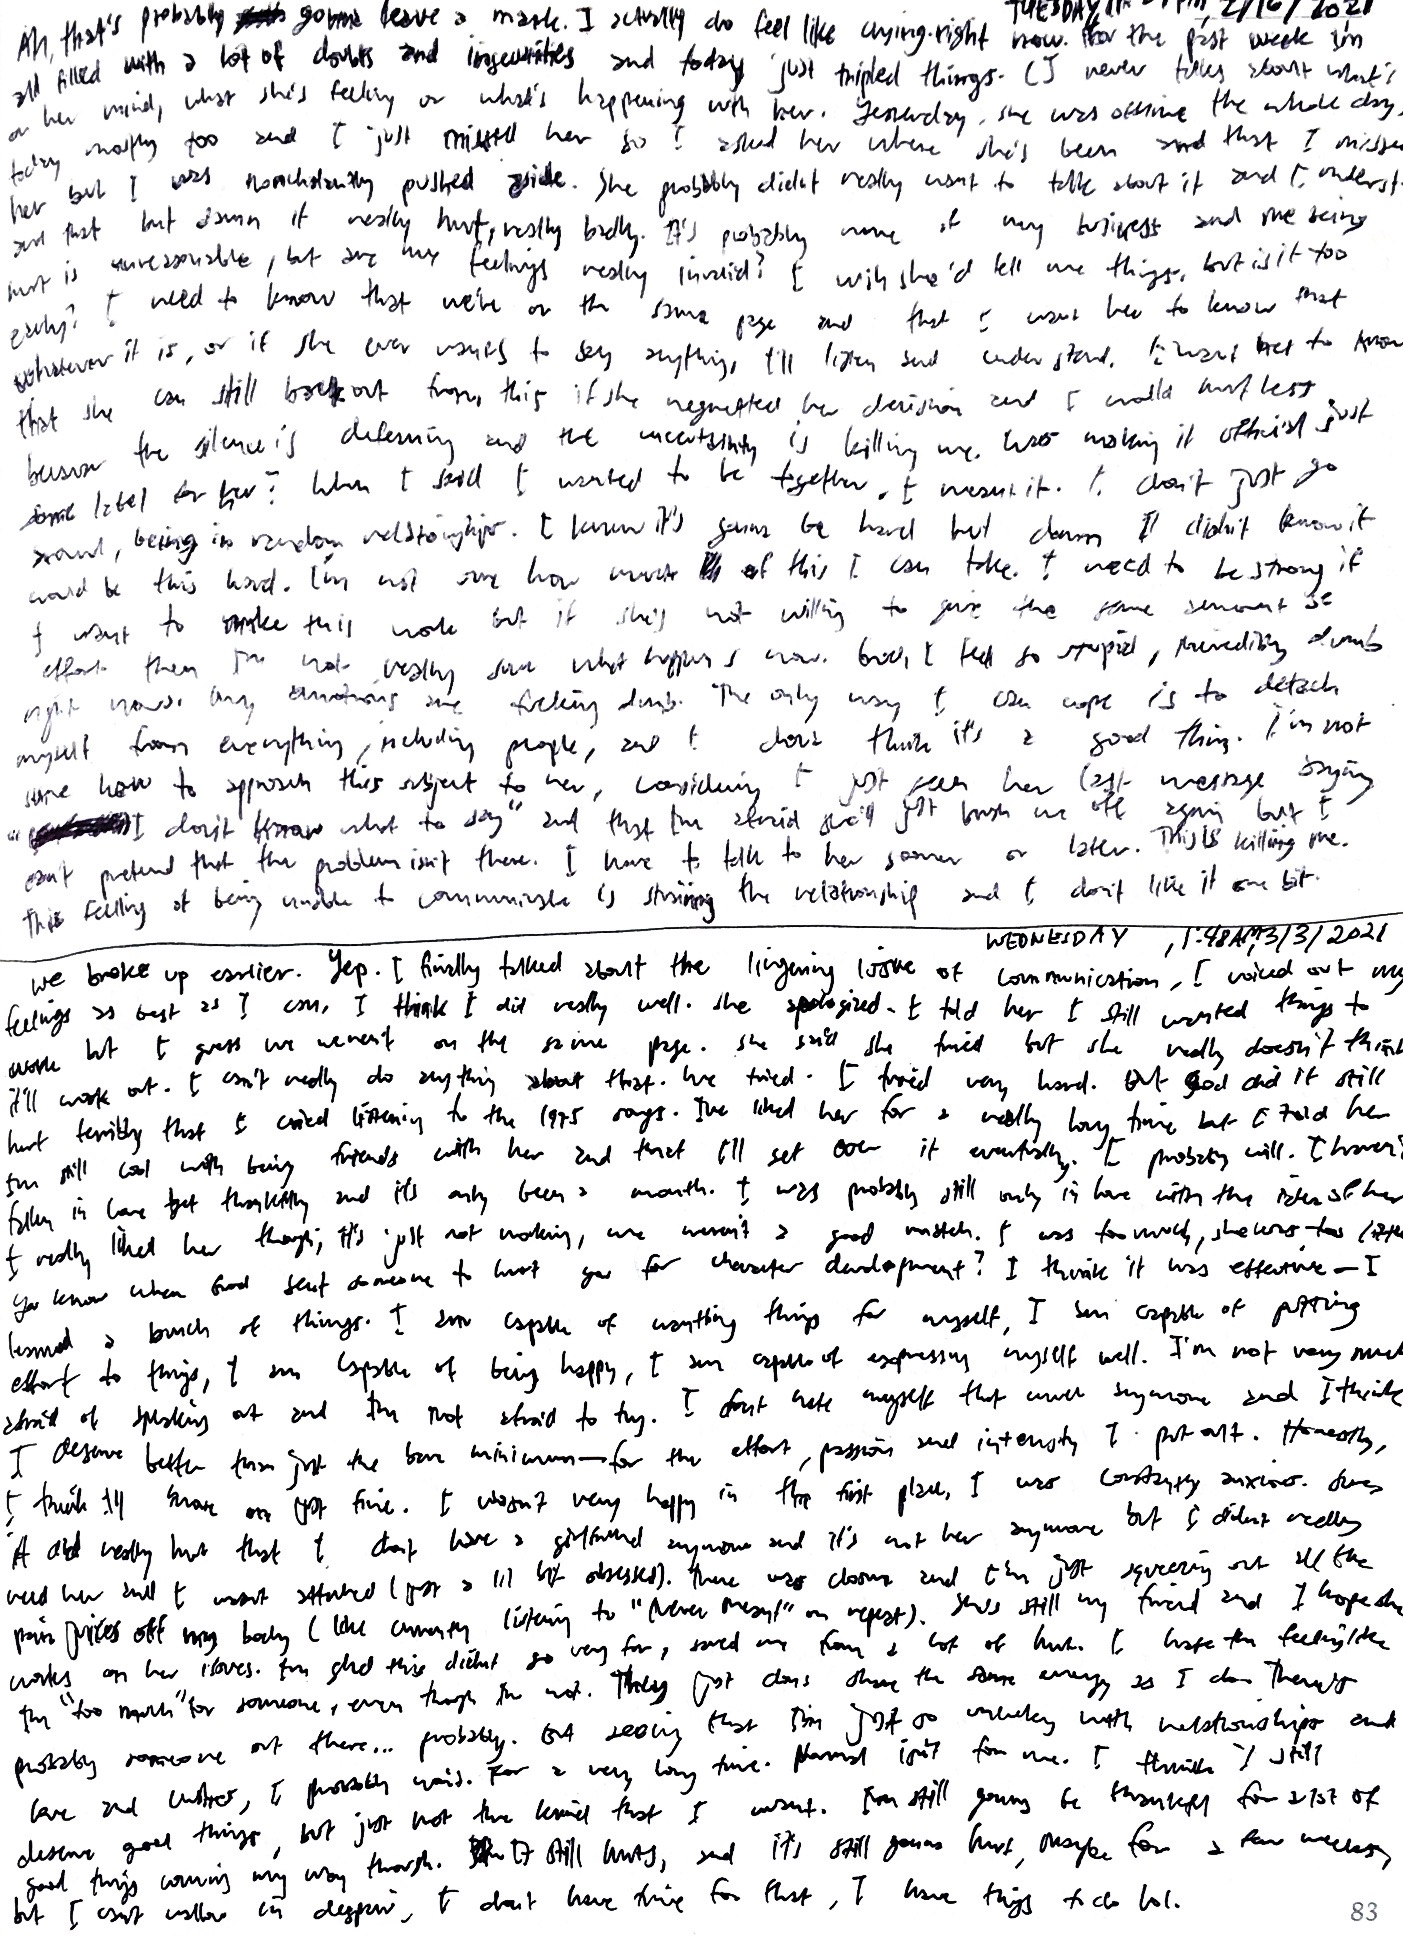 TUESDAY, 2/16/2021
Ah, that's probably gonna leave a mark. I actually do feel like crying right now. For the past week I'm
all filled with a lot of doubts and insecurities and today just tripled things. (J never talks about what's
on her mind, what she's feeling or what's happening with her. Yesterday, she was offline the whole day,
today mostly too and I just missed her so I asked her where she's been and that I missed
her but I was nonchalantly pushed aside. She probably didn't really want to talk about it and I underst-
and that but damn it really hurt, really badly. It's probably none of my business and me being
hurt is unreasonable, but are my feelings really invalid? I wish she'd tell me things, but is it too
early? I need to know that we're on the same page and that I want her to know that
whatever it is, or if she ever wants to say anything, I'll listen and understand. I want her to know
that she can still back out from this if she regretted her decision and I would hurt less
because the silence is deafening and the uncertainty is killing me. Was making it official just
some label for her? When I said I wanted to be together, I meant it. I don't just go
around, being in random relationships. I knew it's gonna be hard but damn I didn't know it
would be this hard. I'm not sure how much of this I can take. I need to be strong if
I want to make this work but if she's not willing to give the same amount of
effort then I'm not really sure what happens now. God, I feel so stupid, incredibly dumb
right now. My emotions are fucking dumb. The only way I can cope is to detach
myself from everything, including people, and I don't think it's a good thing. I'm not
sure how to approach this subject to her, considering I just seen her last message saying
"I don't know what to say" and that I'm afraid she'll just brush me off again but I
can't pretend that the problem isn't there. I have to talk to her sooner or later. This is killing me.
This feeling of being unable to communicate is straining the relationship and I don't like it one bit.
WEDNESDAY, 1:48AM, 3/3/2021
We broke up earlier. Yep. I finally talked about the lingering issue of communication, I voiced out my
feelings as best as I can. I think I did really well. She apologized. I told her I still wanted things to
work but I guess we weren't on the same page. She said she tried but she really doesn't think
it'll work out. I can't really do anything about that. We tried. I tried very hard. But god did it still
hurt terribly that I cried listening to the 1975 songs. I've liked her for a really long time but I told her
I'm still cool with being friends with her and that I'll get over it eventually. I probably will. I haven't
fallen in love yet thankfully and it's only been a month. I was probably still only in love with the idea of her
I really liked her though; it's just not working, we weren't a good match. I was too much, she was too little
You know when God sent someone to hurt you for character development? I think it was effective — I
learned a bunch of things. I am capable of wanting things for myself, I am capable of putting
effort to things, I am capable of being happy, I am capable of expressing myself well. I'm not very much
afraid of speaking out and I'm not afraid to try. I don't hate myself that much anymore and I think
I deserve better than just the bare minimum — for the effort, passion and intensity I put out. Honestly,
I think I'll move on just fine. I wasn't very happy in the first place, I was constantly anxious. Sure
it did really hurt that I don't have a girlfriend anymore and it's not her anymore but I didn't really
need her and I wasn't attached (just a lil bit obsessed). There was closure and I'm just squeezing out all the
pain juices off my body (like currently listening to "Never Meant" on repeat). She's still my friend and I hope she
works on her issues. I'm glad this didn't go very far, saved me from a lot of hurt. I hate the feeling like
I'm "too much" for someone, even though I'm not. They just don't share the same energy as I do. There's
probably someone out there... probably. But seeing that I'm just so unlucky with relationships and
love and, I probably wait. For a very long time. Normal isn't for me. I think I still
deserve good things, but just not the kind that I want. I'm still gonna be thankful for a lot of
good things coming my way though. It still hurts, and it's still gonna hurt, maybe for a few weeks,
but I can't wallow in despair, I don't have time for that, I have things to do lol.
83